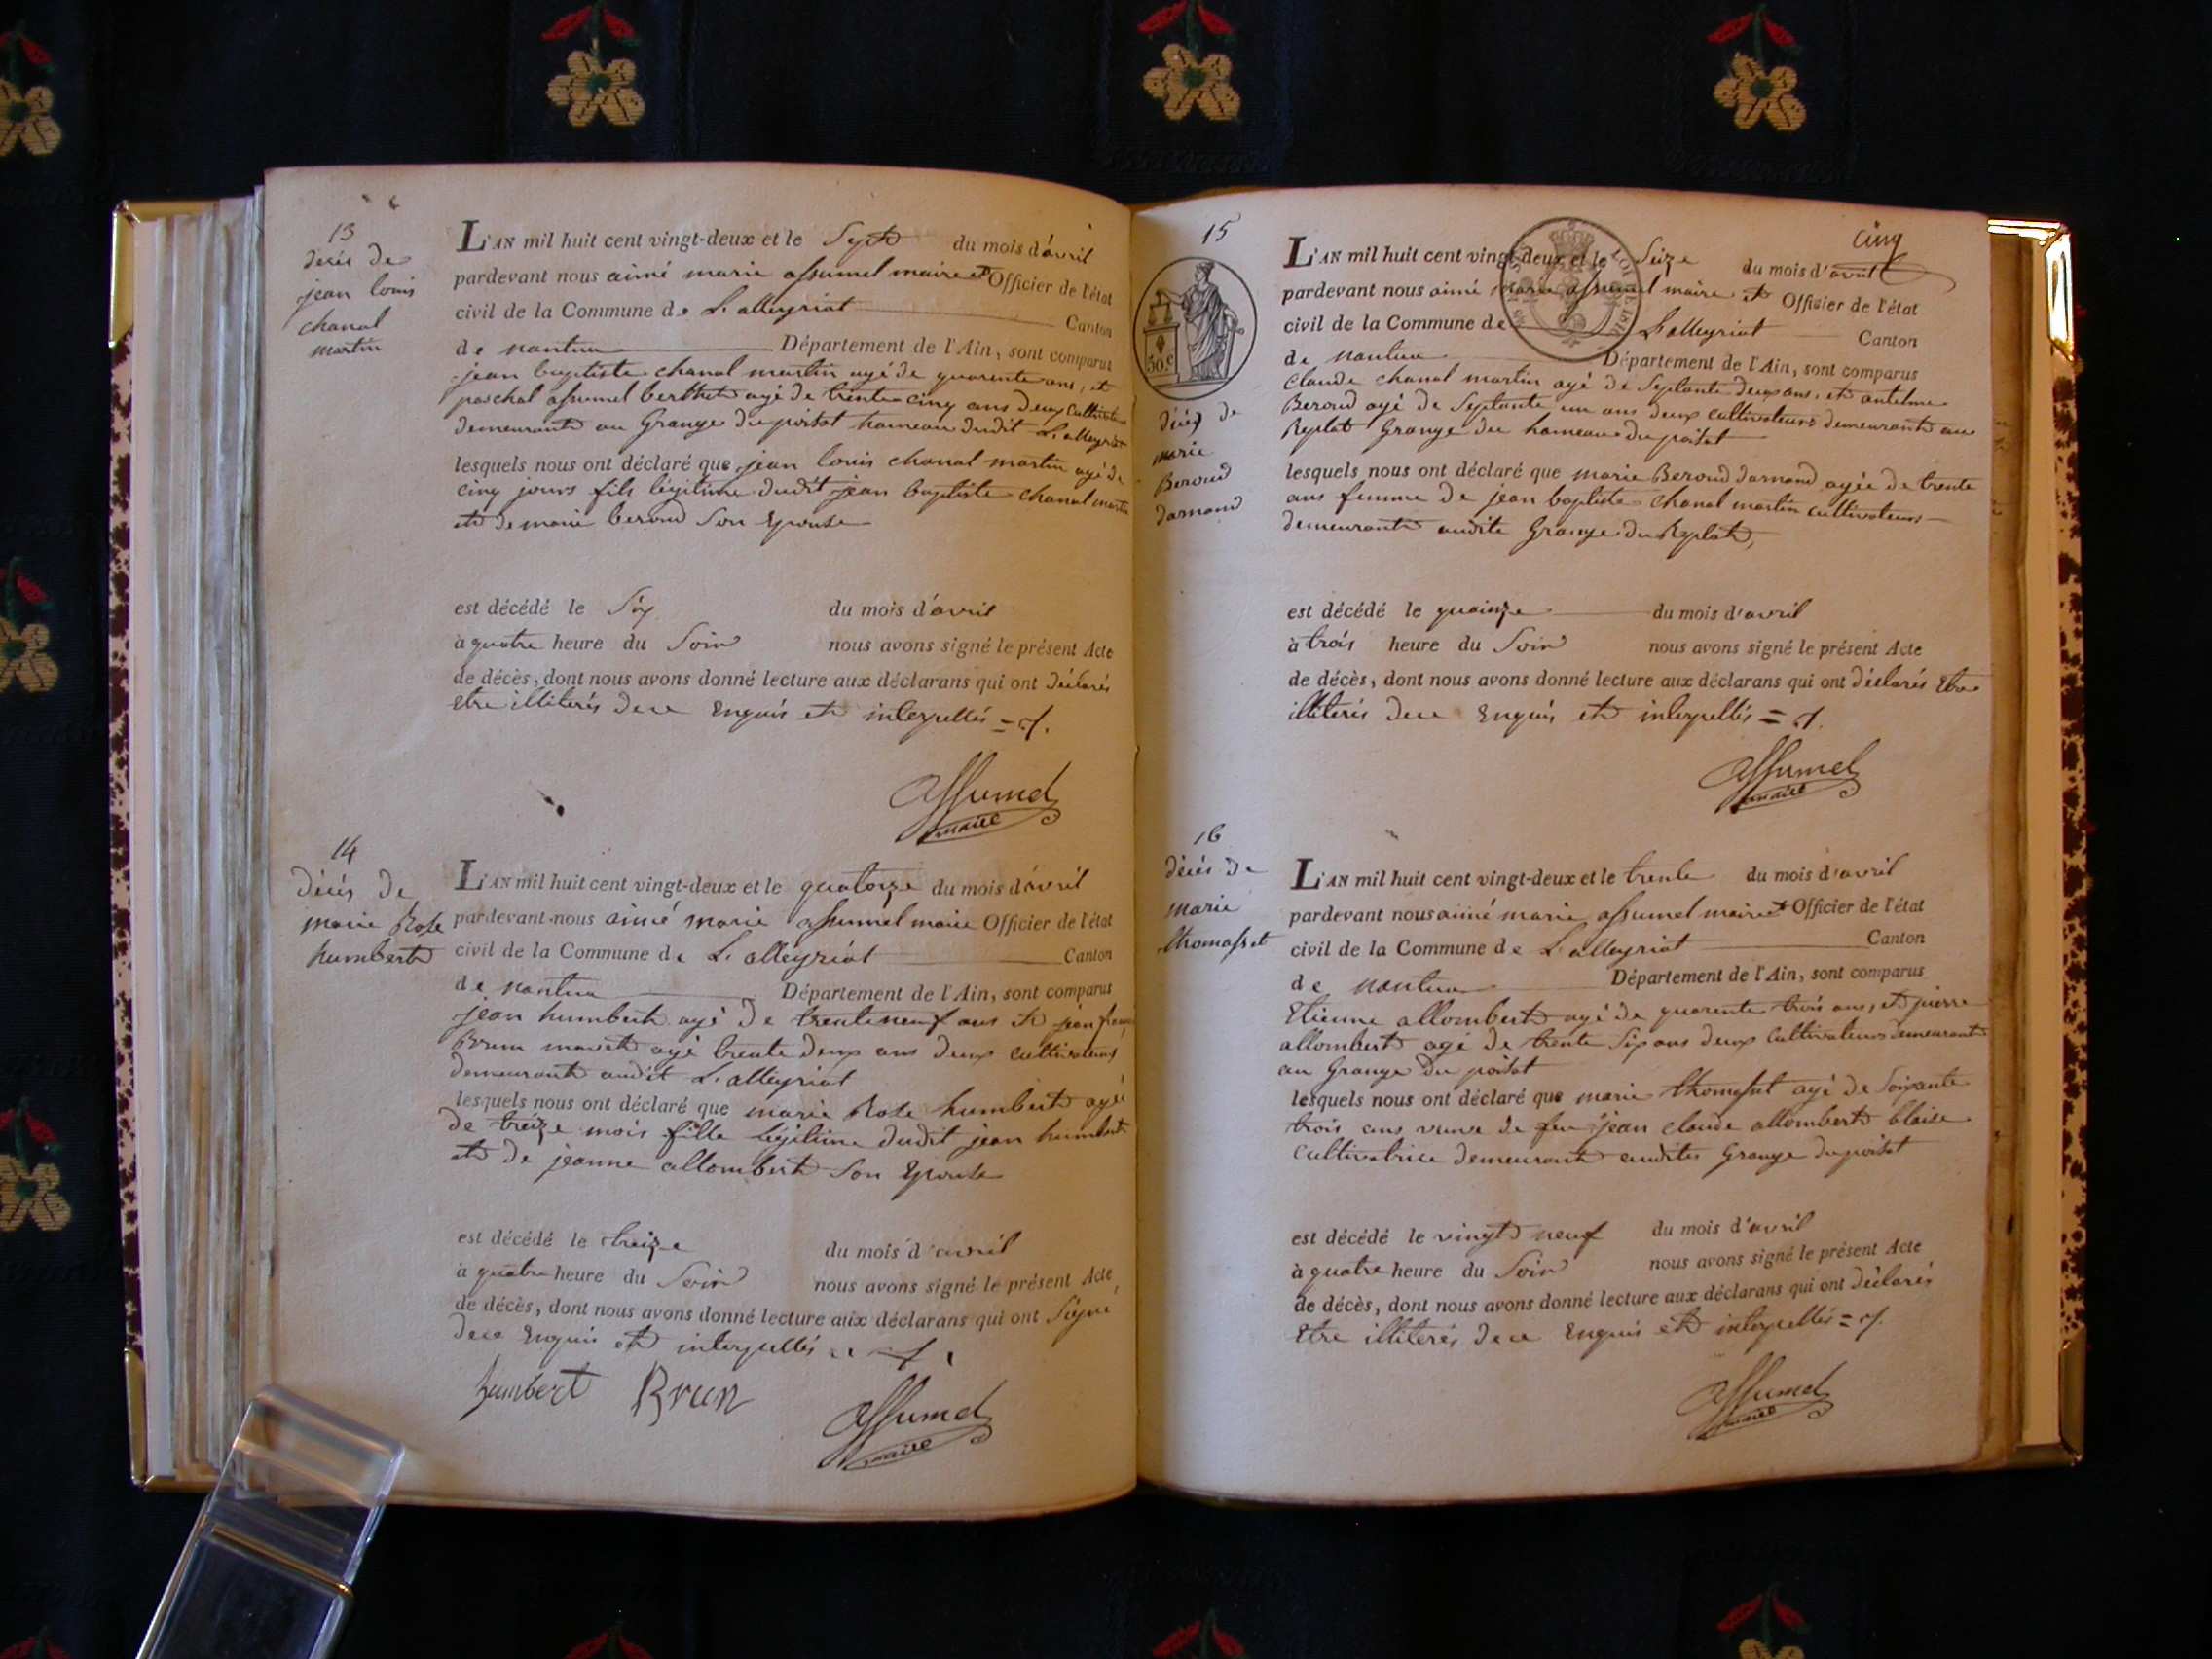 13
décès de
jean louis
chanal
martin
L'AN mil huit cent vingt-deux et le Sept du mois d'avril
pardevant nous aimé marie assumel maire et Officier de l'état
civil de la Commune de L'alleyriat Canton
de nantua Département de l'Ain, sont comparus
jean baptiste chanal martin agé de quarente ans, et
paschal assumel berthet agé de trente cinq ans deux Cultivateurs
demeurants au Grange du poisat hameau dudit L'alleyriat
lesquels nous ont déclaré que jean louis chanal martin agé de
cinq jours fils légitime dudit jean baptiste chanal martin
et de marie beroud Son Epouse
est décédé le Six du mois d'avril
à quatre heure du Soir nous avons signé le présent Acte
de décès, dont nous avons donné lecture aux déclarans qui ont déclarés
Etre illiterés de ce Enquis et interpellés =
Assumel
maire
14
décés de
marie Rose
humbert
L'AN mil huit cent vingt-deux et le quatorze du mois d'avril
pardevant nous aimé marie assumel maire Officier de l'état
civil de la Commune de L'alleyriat Canton
de nantua Département de l'Ain, sont comparus
jean humbert agé de trente neuf ans et jean
Brun agé trente deux ans deux cultivateurs
demeurants audit L'alleyriat
lesquels nous ont déclaré que marie Rose humbert agé
de treize mois fille légitime dudit jean humbert
et de jeanne allombert Son Epouse
est décédé le treize du mois d'avril
à quatre heure du Soir nous avons signé le présent Acte,
de décès, dont nous avons donné lecture aux déclarans qui ont Signé
de ce Enquis et interpellés
humbert Brun
Assumel
maire
15
50 c
décés de
marie
Beroud
darnand
cinq
L'AN mil huit cent vingt-deux et le Seize du mois d'avril
pardevant nous aimé marie assumel maire et Officier de l'état
civil de la Commune de L'alleyriat Canton
de nantua Département de l'Ain, sont comparus
Claude chanal martin agé de Septante deux ans, et antelme
Beroud agé de Septante un ans deux cultivateurs demeurants au
Replat Grange du hameau du poisat
lesquels nous ont déclaré que marie Beroud darnand agée de trente
ans femme de jean baptiste chanal martin cultivateurs
demeurants audite Grange du Replat,
est décédé le quainze du mois d'avril
à trois heure du Soir nous avons signé le présent Acte
de décès, dont nous avons donné lecture aux déclarans qui ont déclarés Etre
illiterés de ce Enquis et interpellés =
Assumel
maire
16
décés de
marie
thomasset
L'AN mil huit cent vingt-deux et le trente du mois d'avril
pardevant nous aimé marie assumel maire et Officier de l'état
civil de la Commune de L'alleyriat Canton
de nantua Département de l'Ain, sont comparus
Etienne allombert agé de quarente trois ans, et pierre
allombert agé de trente Six ans deux Cultivateurs demeurants
au Grange du poisat
lesquels nous ont déclaré que marie thomasset agé de Soixante
trois ans veuve de feu jean claude allombert blaise
Cultivatrice demeurant audites Grange du poisat
est décédé le vingt neuf du mois d'avril
à quatre heure du Soir nous avons signé le présent Acte
de décès, dont nous avons donné lecture aux déclarans qui ont déclarés
Etre illiterés de ce Enquis et interpellés =
Assumel
maire